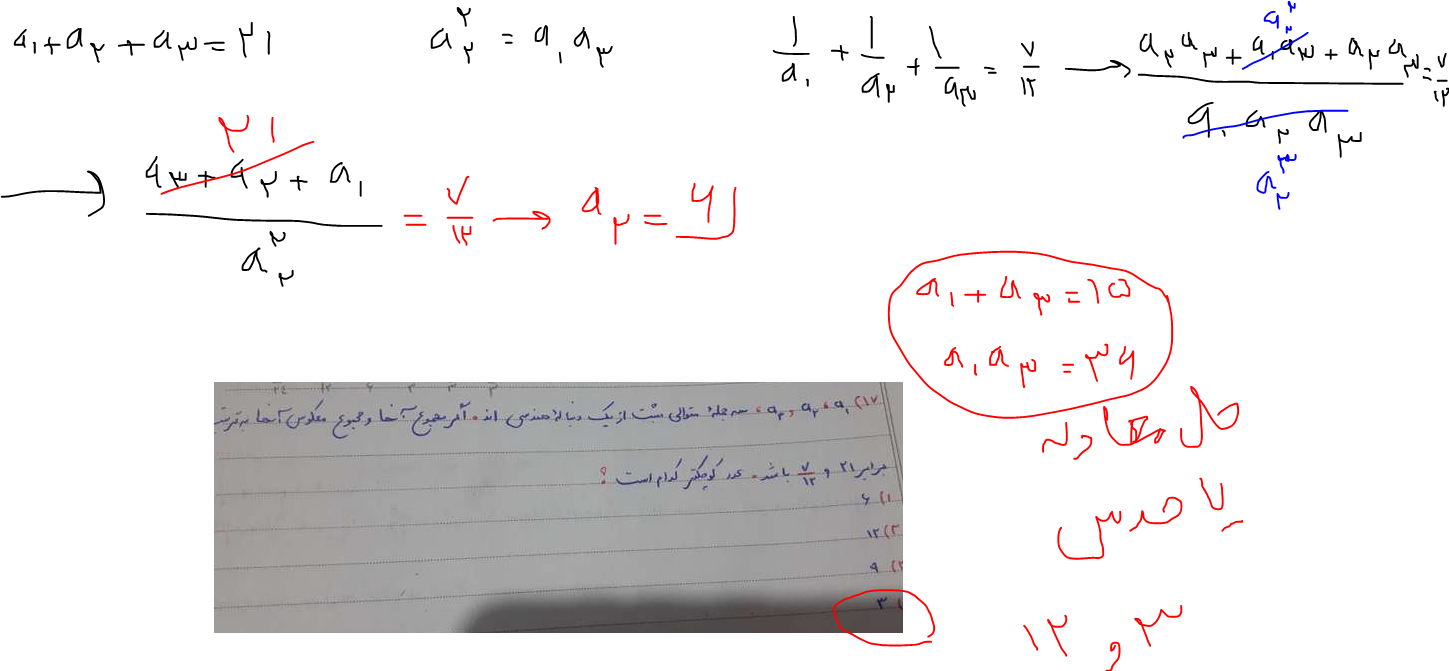 a₁ + a₂ + a₃ = ۲۱
a₂² = a₁ a₃
۱/a₁ + ۱/a₂ + ۱/a₃ = ۷/۱۲ → (a₂ a₃ + a₁ a₃ + a₂ a₃)/(a₁ a₂ a₃) = ۷/۱۲
a₂²
a₂³
→ (a₃ + a₂ + a₁)/a₂² = ۷/۱۲ → a₂ = ۶
۲۱
a₁ + a₃ = ۱۵
a₁ a₃ = ۳۶
حل معادله
یا حدس
۳ و ۱۲
۱۷) a₁ ، a₂ و a₃ ، سه جملهٔ متوالی مثبت از یک دنبالهٔ هندسی اند. اگر مجموع آنها و مجموع معکوس آنها به ترتیب
برابر ۲۱ و ۷/۱۲ باشد. عدد کوچکتر کدام است ؟
۱) ۶
۲) ۱۲
۳) ۹
۳